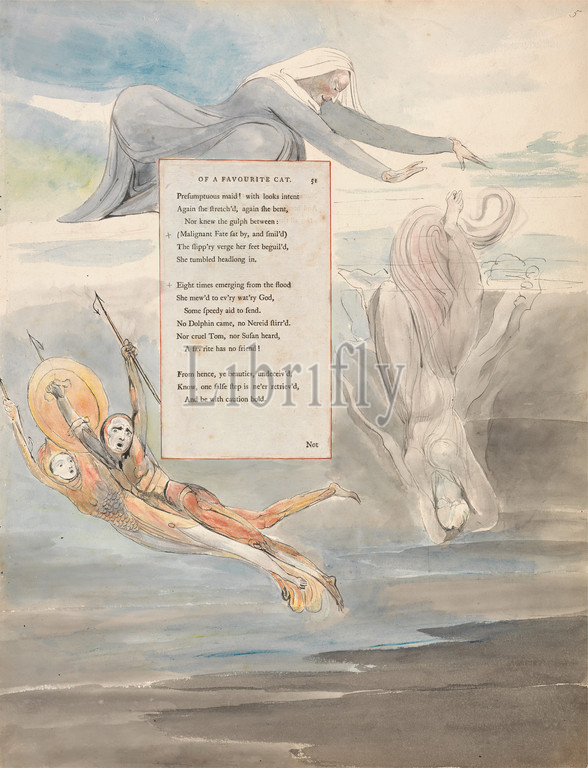 5
OF A FAVOURITE CAT. 51
Presumptuous maid! with looks intent
Again ſhe ſtretch'd, again ſhe bent,
Nor knew the gulph between:
+ (Malignant Fate ſat by, and ſmil'd)
The ſlipp'ry verge her feet beguil'd,
She tumbled headlong in.
+ Eight times emerging from the flood
She mew'd to ev'ry wat'ry God,
Some ſpeedy aid to ſend.
No Dolphin came, no Nereid ſtirr'd,
Nor cruel Tom, nor Suſan heard,
A fav'rite has no friend!
From hence, ye beauties, undeceiv'd,
Know, one falſe ſtep is ne'er retriev'd,
And be with caution bold.
Not
Librifly